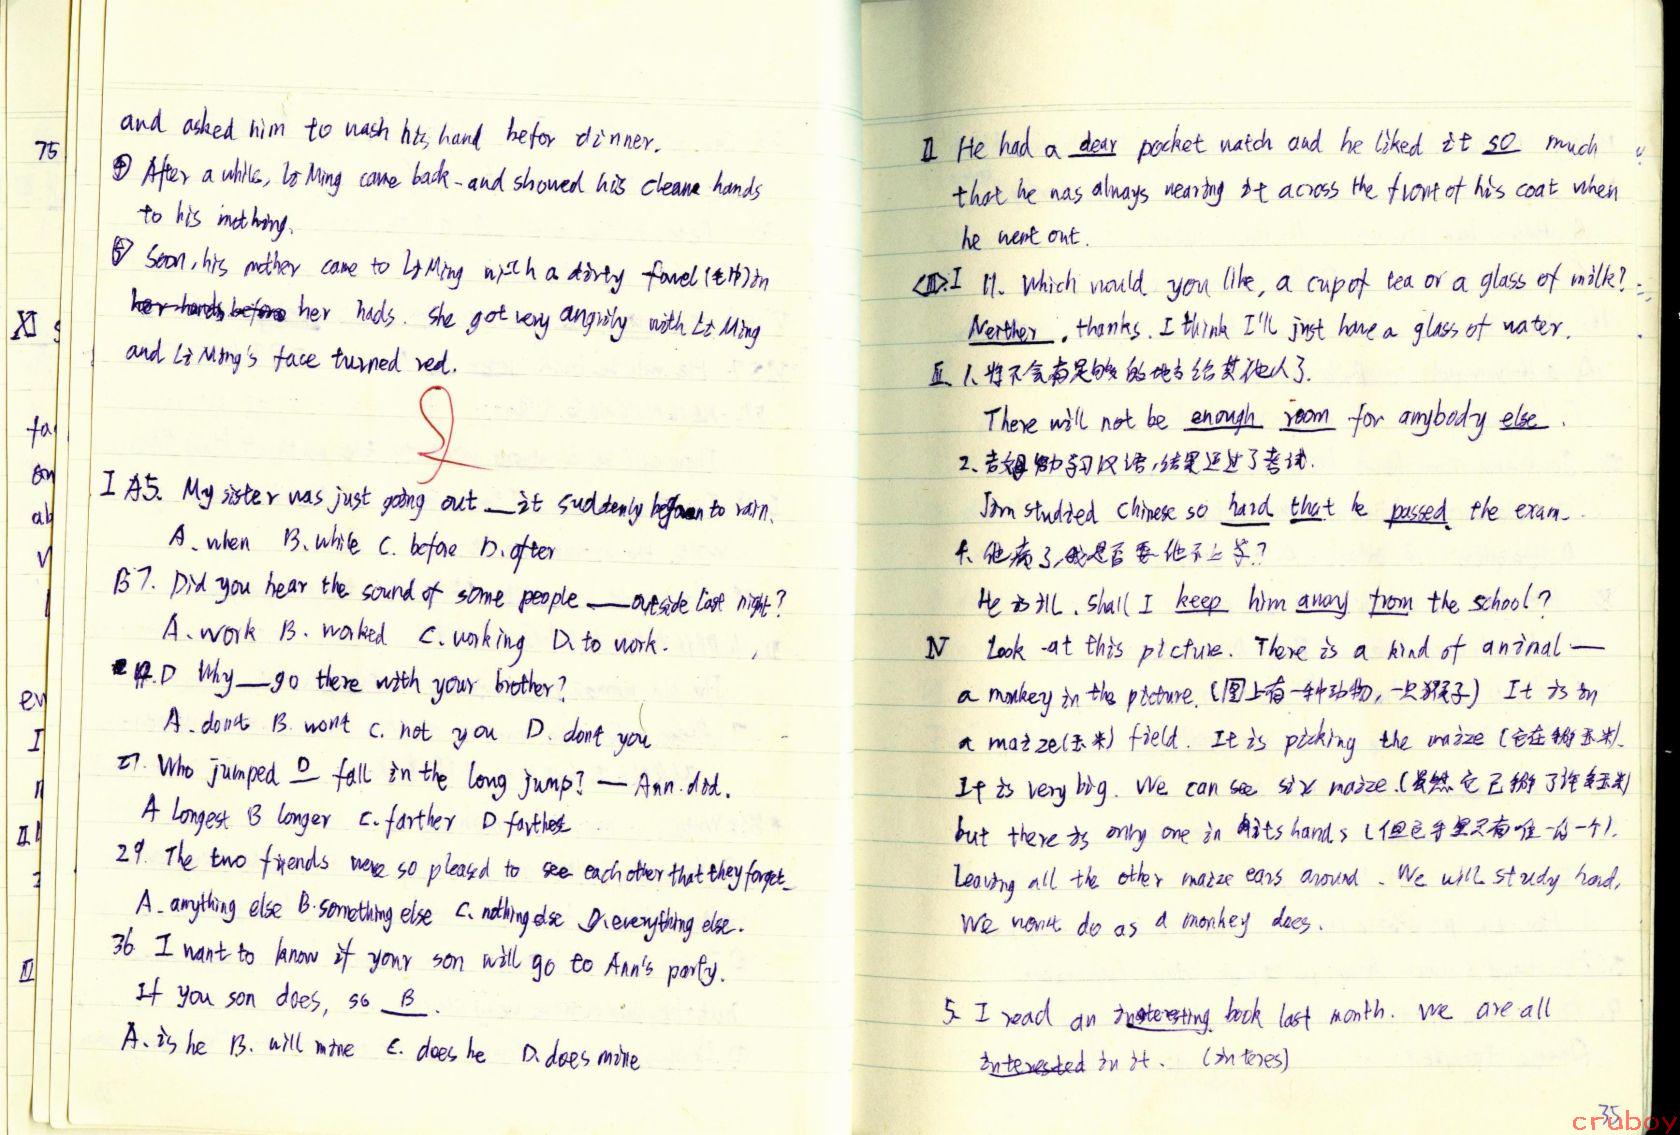 and asked him to wash his hand befor dinner.
④ After a while, Li Ming came back and showed his cleane hands
to his mothing.
⑤ Soon, his mother came to Li Ming with a dirty towel (毛巾) in
her hands before her hads. She got very angrily with Li Ming
and Li Ming's face turned red.
I A5. My sister was just going out __ it suddenly began to rain.
A. when B. while C. before D. after
B7. Did you hear the sound of some people __ outside last night?
A. work B. worked C. working D. to work.
D Why __ go there with your brother?
A. don't B. won't C. not you D. don't you
27. Who jumped D fall in the long jump? — Ann did.
A longest B longer C. farther D farthest
29. The two friends were so pleased to see each other that they forget_
A. anything else B. something else C. nothing else D. everything else.
36 I want to know if your son will go to Ann's party.
If you son does, so B .
A. is he B. will mine C. does he D. does mine
75
XI
fa
on
ab
ev
I
II
II He had a dear pocket watch and he liked it so much
that he was always wearing it across the front of his coat when
he went out.
I 11. Which would you like, a cup of tea or a glass of milk?
Neither, thanks. I think I'll just have a glass of water.
1. 将不会有足够的地方给其他人了.
There will not be enough room for anybody else.
2. 吉姆努力学习汉语,结果通过了考试.
Jim studied Chinese so hard that he passed the exam.
4. 他病了,我是否要他不上学?
He is ill. Shall I keep him away from the school?
IV Look at this picture. There is a kind of animal —
a monkey in the picture. (图上有一种动物,一只猴子) It is in
a maize(玉米) field. It is picking the maize (它在掰玉米).
It is very big. We can see six maize. (虽然它已掰了许多玉米)
but there is only one in its hands (但它手里只有唯一的一个).
Leaving all the other maize ears around. We will study hard,
We won't do as a monkey does.
5. I read an interesting book last month. We are all
interested in it. (interes)
35
cruboy